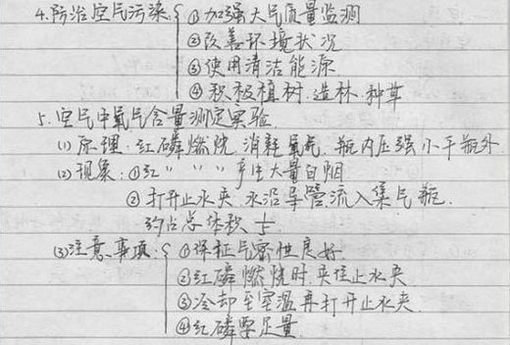 4.防治空气污染 ①加强大气质量监测
②改善环境状况
③使用清洁能源
④积极植树.造林.种草
5.空气中氧气含量测定实验
(1)原理:红磷燃烧 消耗氧气 瓶内压强小于瓶外
(2)现象:①红〃 〃 〃 产生大量白烟
②打开止水夹 水沿导管流入集气瓶.
约占总体积 1/5
(3)注意事项: ①保证气密性良好.
②红磷燃烧时.夹住止水夹
③冷却至室温再打开止水夹.
④红磷要足量.